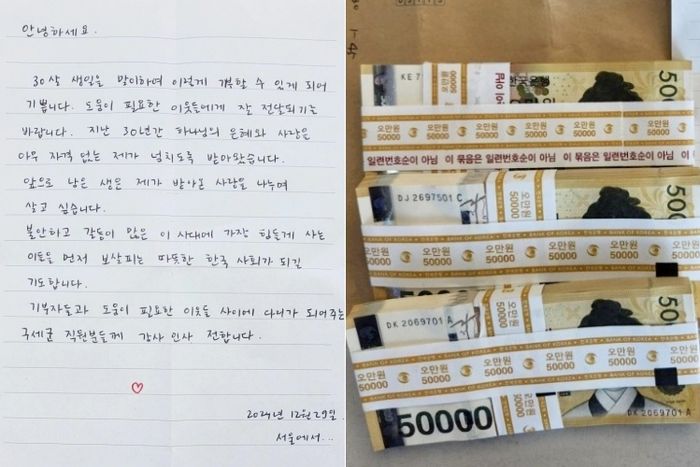 안녕하세요.
30살 생일을 맞이하여 이렇게 기부할 수 있게 되어
기쁩니다. 도움이 필요한 이웃들에게 잘 전달되기를
바랍니다. 지난 30년간 하나님의 은혜와 사랑은
아무 자격 없는 제가 넘치도록 받아왔습니다.
앞으로 남은 생은 제가 받아온 사랑을 나누며
살고 싶습니다.
불안하고 갈등이 많은 이 시대에 가장 힘들게 사는
이들을 먼저 보살피는 따뜻한 한국 사회가 되길
기도합니다.
기부자들과 도움이 필요한 이웃들 사이에 다리가 되어주는
구세군 직원분들께 감사 인사 전합니다.
2024년 12월 29일.
서울에서...
KE 7
한국은행
오만원 오만원 오만원 오만원 오만원
50000 50000 50000 50000 50000
일련번호순이 아님 이 묶음은 일련번호순이 아님 이 묶음은 일련번호순이 아님
DJ 2697501 C
오만원
50000
BANK OF KOREA
오만원 오만원 오만원 오만원
50000 50000 50000 50000
DK 2069701 A
오만원
50000
BANK OF KOREA
오만원 오만원 오만원 오만원
50000 50000 50000 50000
50000
DK 2069701 A